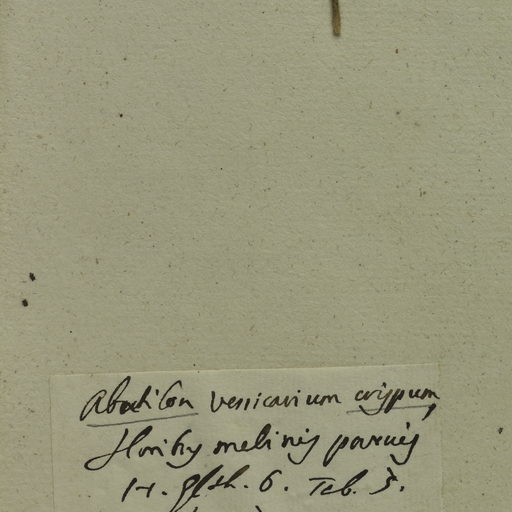 Abutilon vessicarium crispum,
floribus melinis parvis
H. Elth. 6. Tab. 5.